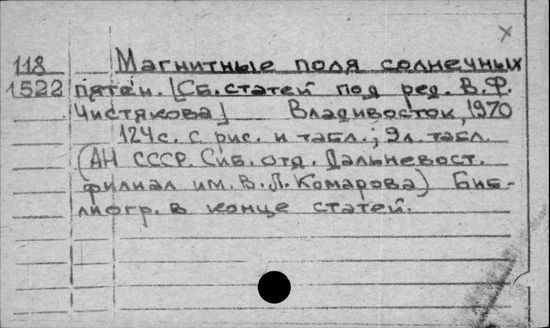 118 Магнитные поля солнечных
1522 пятен. [Сб. статей под ред. В.Ф.
Чистякова] Владивосток, 1970
124 с. с рис. и табл.; 9 л. табл.
(АН СССР. Сиб. отд. Дальневост.
филиал им. В.Л. Комарова) Биб-
лиогр. в конце статей.